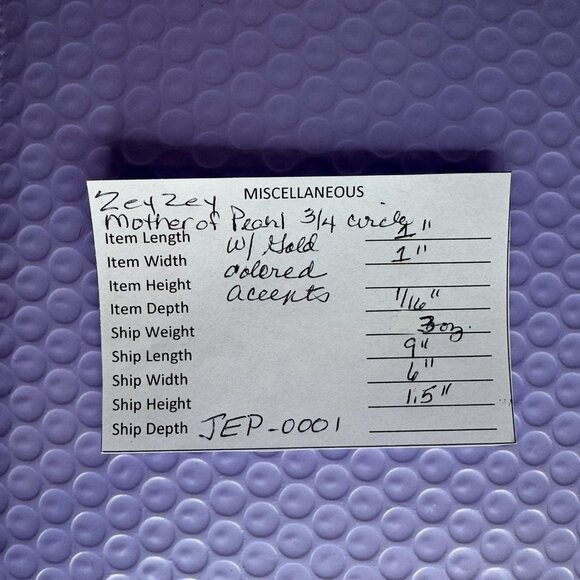 ZeyZey MISCELLANEOUS
Mother of Pearl 3/4 circle
Item Length W/ Gold 1"
Item Width colored 1"
Item Height accents
Item Depth 1/16"
Ship Weight 3oz.
Ship Length 9"
Ship Width 6"
Ship Height 1.5"
Ship Depth JEP-0001